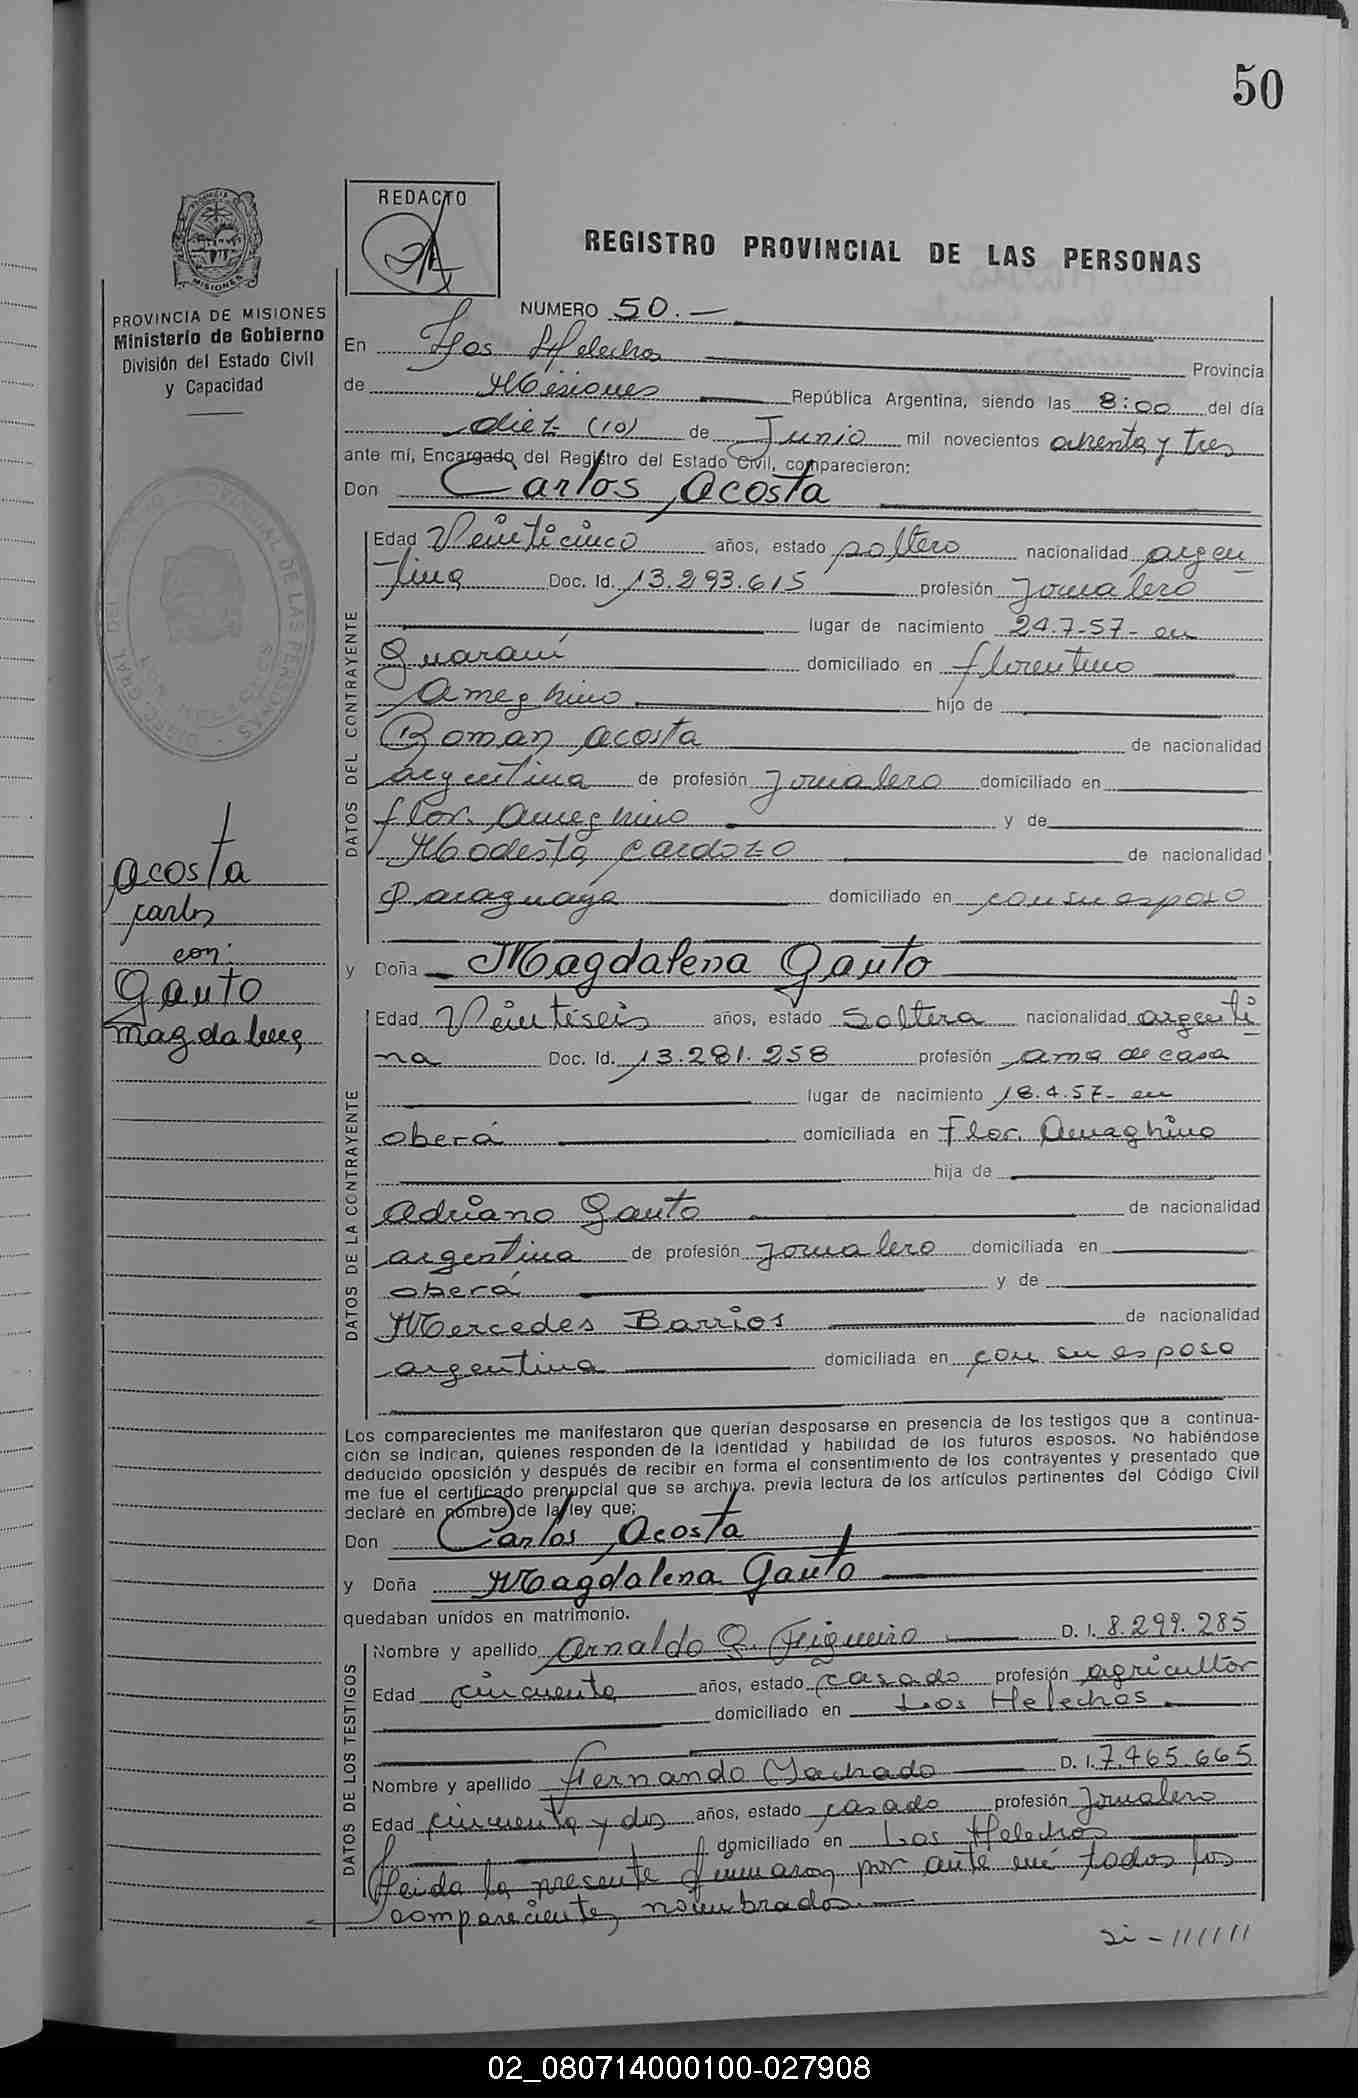 50
REDACTO
REGISTRO PROVINCIAL DE LAS PERSONAS
PROVINCIA DE MISIONES
Ministerio de Gobierno
División del Estado Civil
y Capacidad
NUMERO 50.—
En Los Helechos Provincia
de Misiones República Argentina, siendo las 8:00 del día
diez (10) de Junio mil novecientos ochenta y tres
ante mí, Encargado del Registro del Estado Civil, comparecieron:
Don Carlos Acosta
DATOS DEL CONTRAYENTE
Edad Veinticinco años, estado soltero nacionalidad argen
tina Doc. Id. 13.293.615 profesión Jornalero
lugar de nacimiento 24.7-57- en
Guaraní domiciliado en florentino
Ameghino hijo de
Roman Acosta de nacionalidad
argentina de profesión Jornalero domiciliado en
flor. Ameghino y de
Modesta Cardozo de nacionalidad
Paraguaya domiciliado en con su esposo
Acosta
Carlos
con:
Gauto
Magdalena
y Doña Magdalena Gauto
DATOS DE LA CONTRAYENTE
Edad Veintiseis años, estado Soltera nacionalidad argenti
na Doc. Id. 13.281.258 profesión ama de casa
lugar de nacimiento 18.4.57- en
oberá domiciliada en Flor. Ameghino
hija de
Adriano Gauto de nacionalidad
argentina de profesión Jornalero domiciliada en
oberá y de
Mercedes Barrios de nacionalidad
argentina domiciliada en con su esposo
Los comparecientes me manifestaron que querían desposarse en presencia de los testigos que a continua-
ción se indican, quienes responden de la identidad y habilidad de los futuros esposos. No habiéndose
deducido oposición y después de recibir en forma el consentimiento de los contrayentes y presentado que
me fue el certificado prenupcial que se archiva, previa lectura de los artículos pertinentes del Código Civil
declaré en nombre de la ley que:
Don Carlos Acosta
y Doña Magdalena Gauto
quedaban unidos en matrimonio.
DATOS DE LOS TESTIGOS
Nombre y apellido Arnaldo G. Figueiro D. I. 8.299.285
Edad cincuenta años, estado casado profesión agricultor
domiciliado en Los Helechos
Nombre y apellido Fernando Machado D. I. 7.465.665
Edad cincuenta y dos años, estado casado profesión Jornalero
domiciliado en Los Helechos
Leida la presente firmaron por ante mí todos los
comparecientes nombrados
02_080714000100-027908